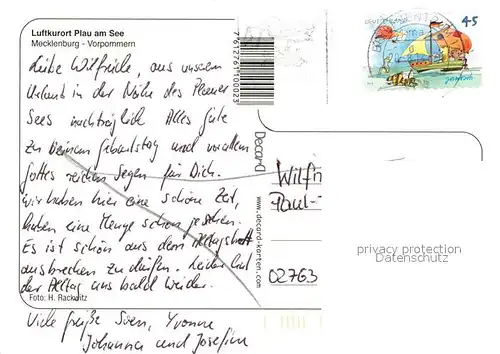 Luftkurort Plau am See
Mecklenburg - Vorpommern
Liebe Wilfriede, aus unserem
Urlaub in der Nähe des Plauer
Sees nachträglich Alles Gute
zu Deinem Geburtstag und vor allem
Gottes reichen Segen für Dich.
Wir haben hier eine schöne Zeit,
haben eine Menge schon gesehen.
Es ist schön aus dem
ausbrechen zu dürfen. Leider hat
der Alltag uns bald wieder.
Foto: H. Rackwitz
Viele Grüße Sven, Yvonne
Johanna und Josefine
7612761100023
Decard
www.decard-karten.com
45
Wilfr
Paul-
02763
privacy protection
Datenschutz